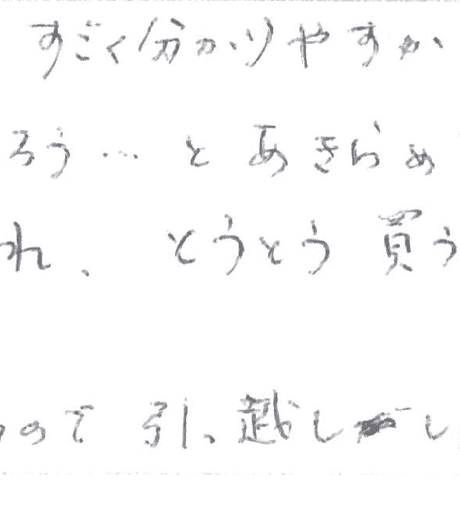 すごく分かりやすか
ろう…とあきらめ
れ、とうとう買う
ので引っ越し し